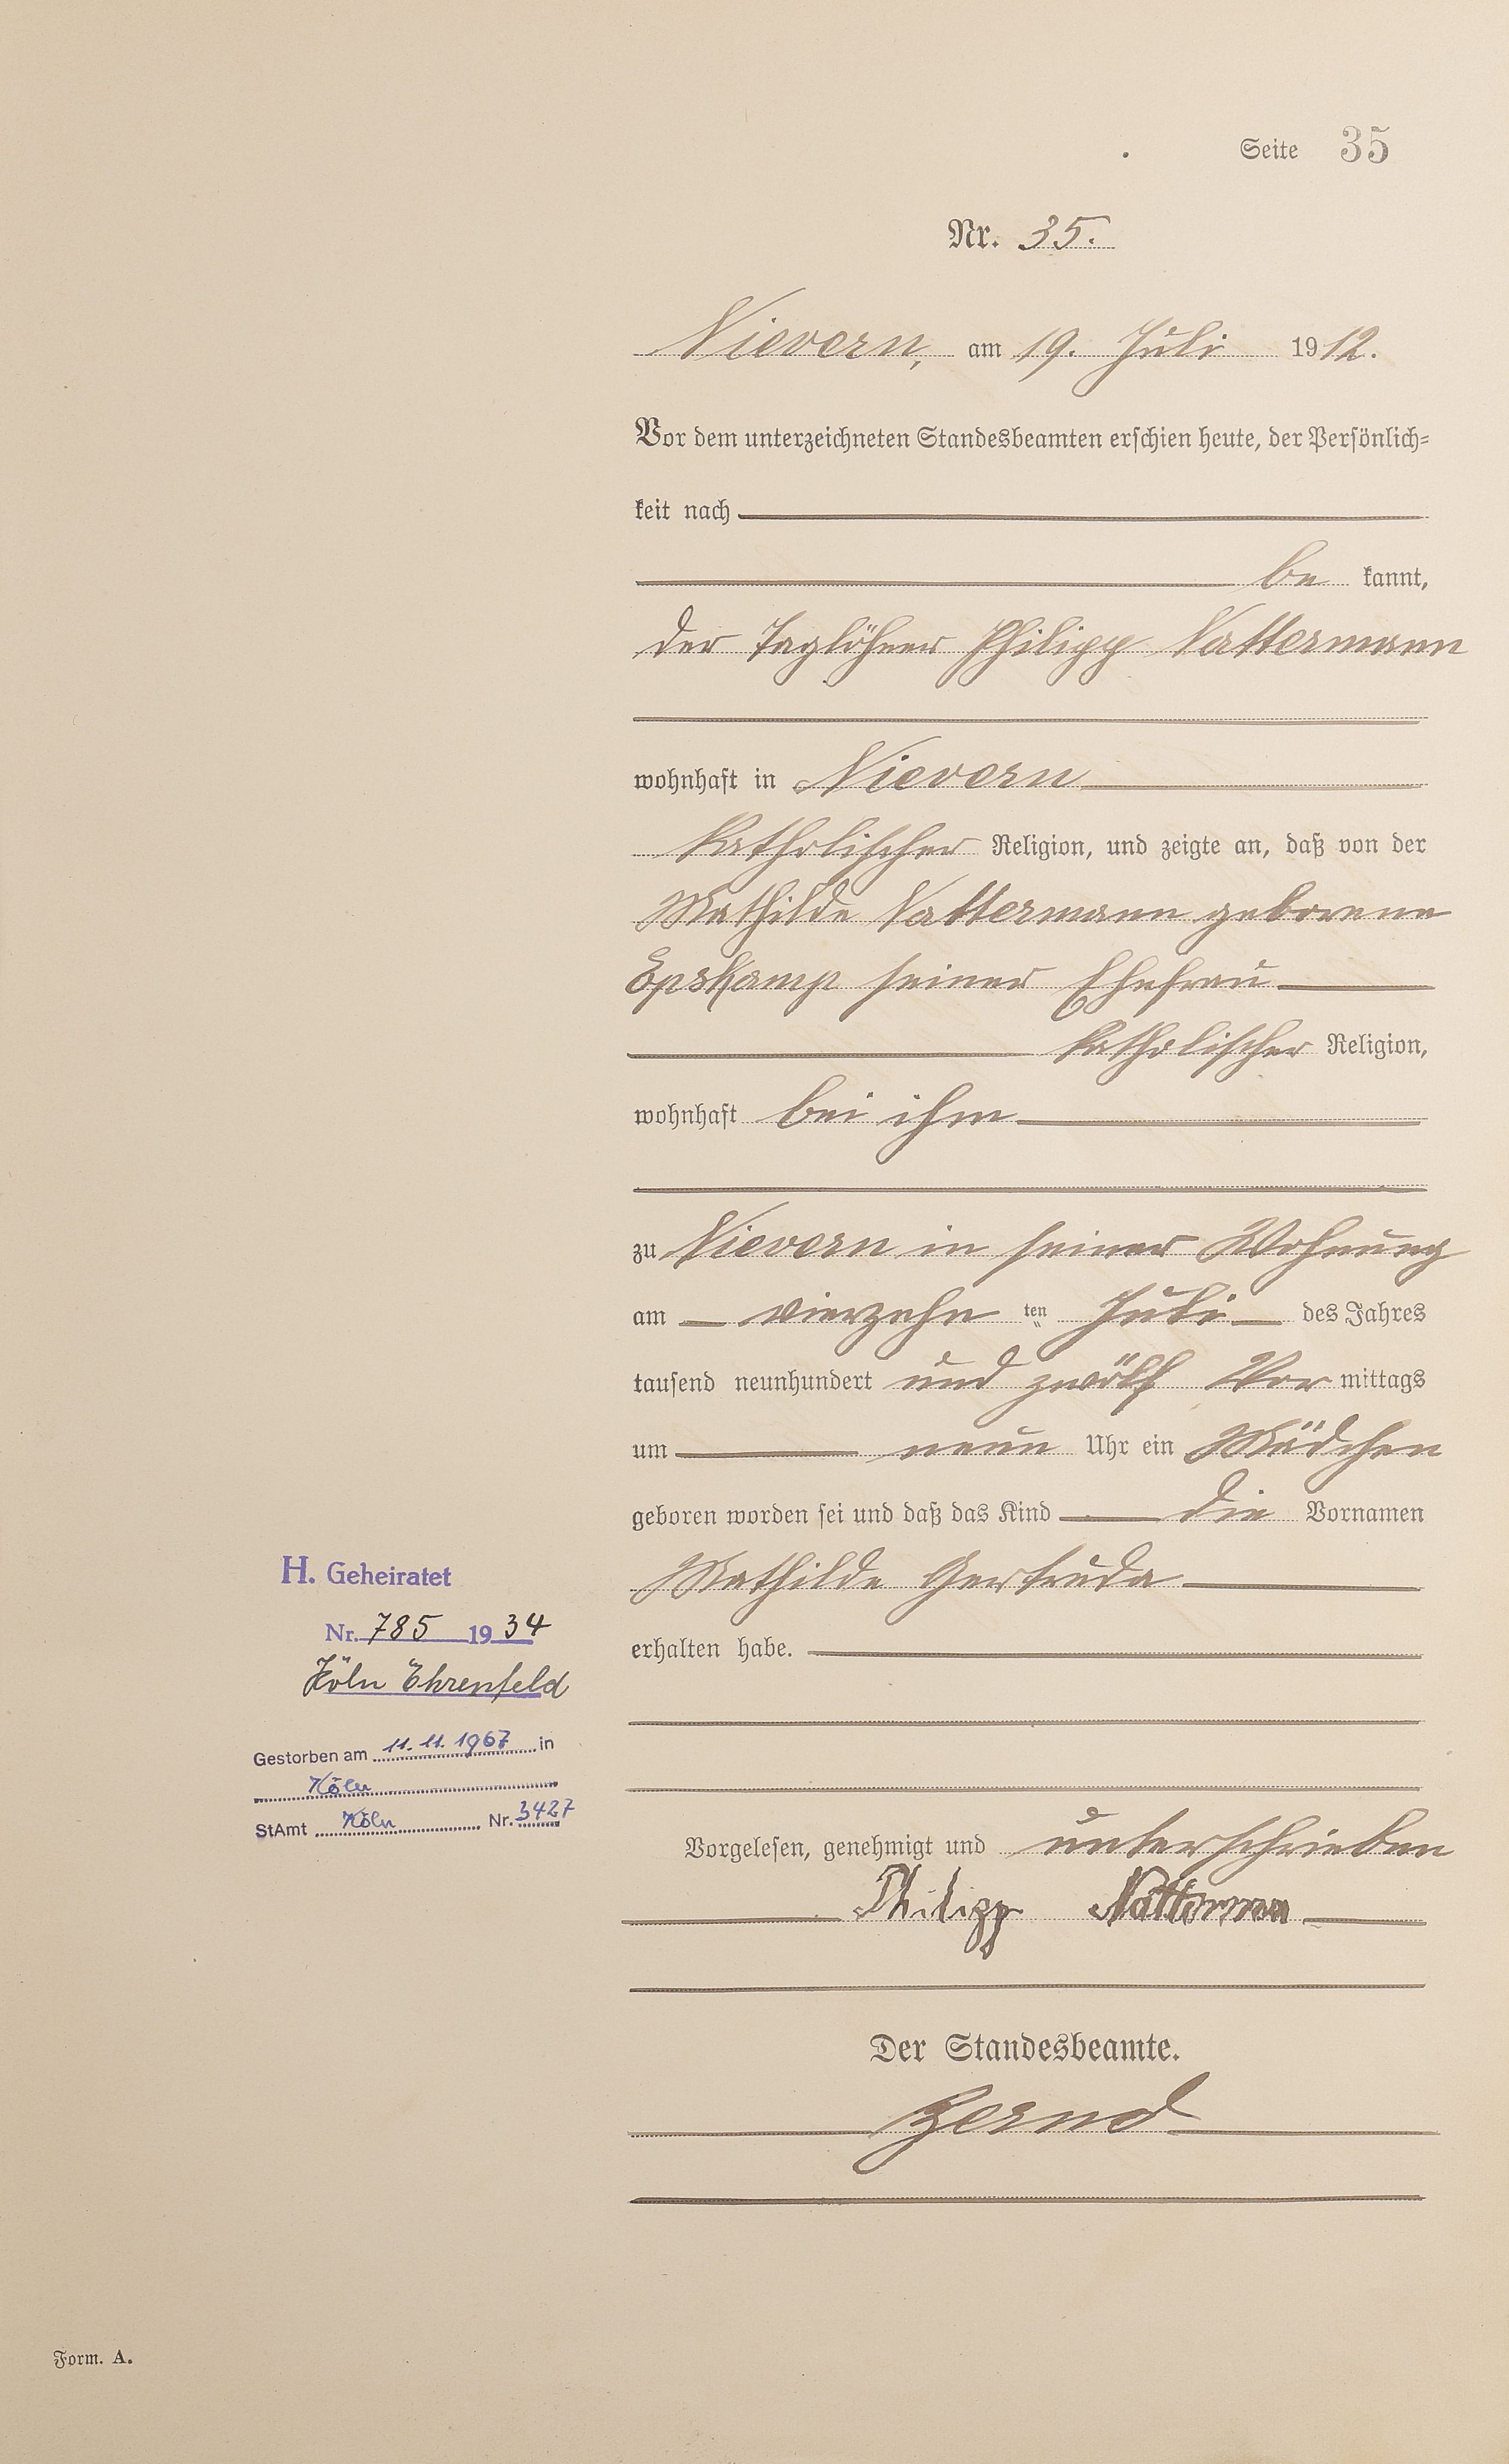 Seite 35
Nr. 35.
Nievern, am 19. Juli 1912.
Vor dem unterzeichneten Standesbeamten erschien heute, der Persönlich-
keit nach
be kannt,
der Taglöhner Philipp Nattermann
wohnhaft in Nievern
katholischer Religion, und zeigte an, daß von der
Mathilde Nattermann geborene
Epskamp seiner Ehefrau
katholischer Religion,
wohnhaft bei ihm
zu Nievern in seiner Wohnung
am vierzehn ten Juli des Jahres
tausend neunhundert und zwölf Vor mittags
um neun Uhr ein Mädchen
geboren worden sei und daß das Kind die Vornamen
Mathilde Gertruda
erhalten habe.
H. Geheiratet
Nr. 785 1934
Köln Ehrenfeld
Gestorben am 11.11.1967 in
Köln
StAmt Köln Nr. 3427
Vorgelesen, genehmigt und unterschrieben
Philipp
Der Standesbeamte.
Zernd
Form. A.